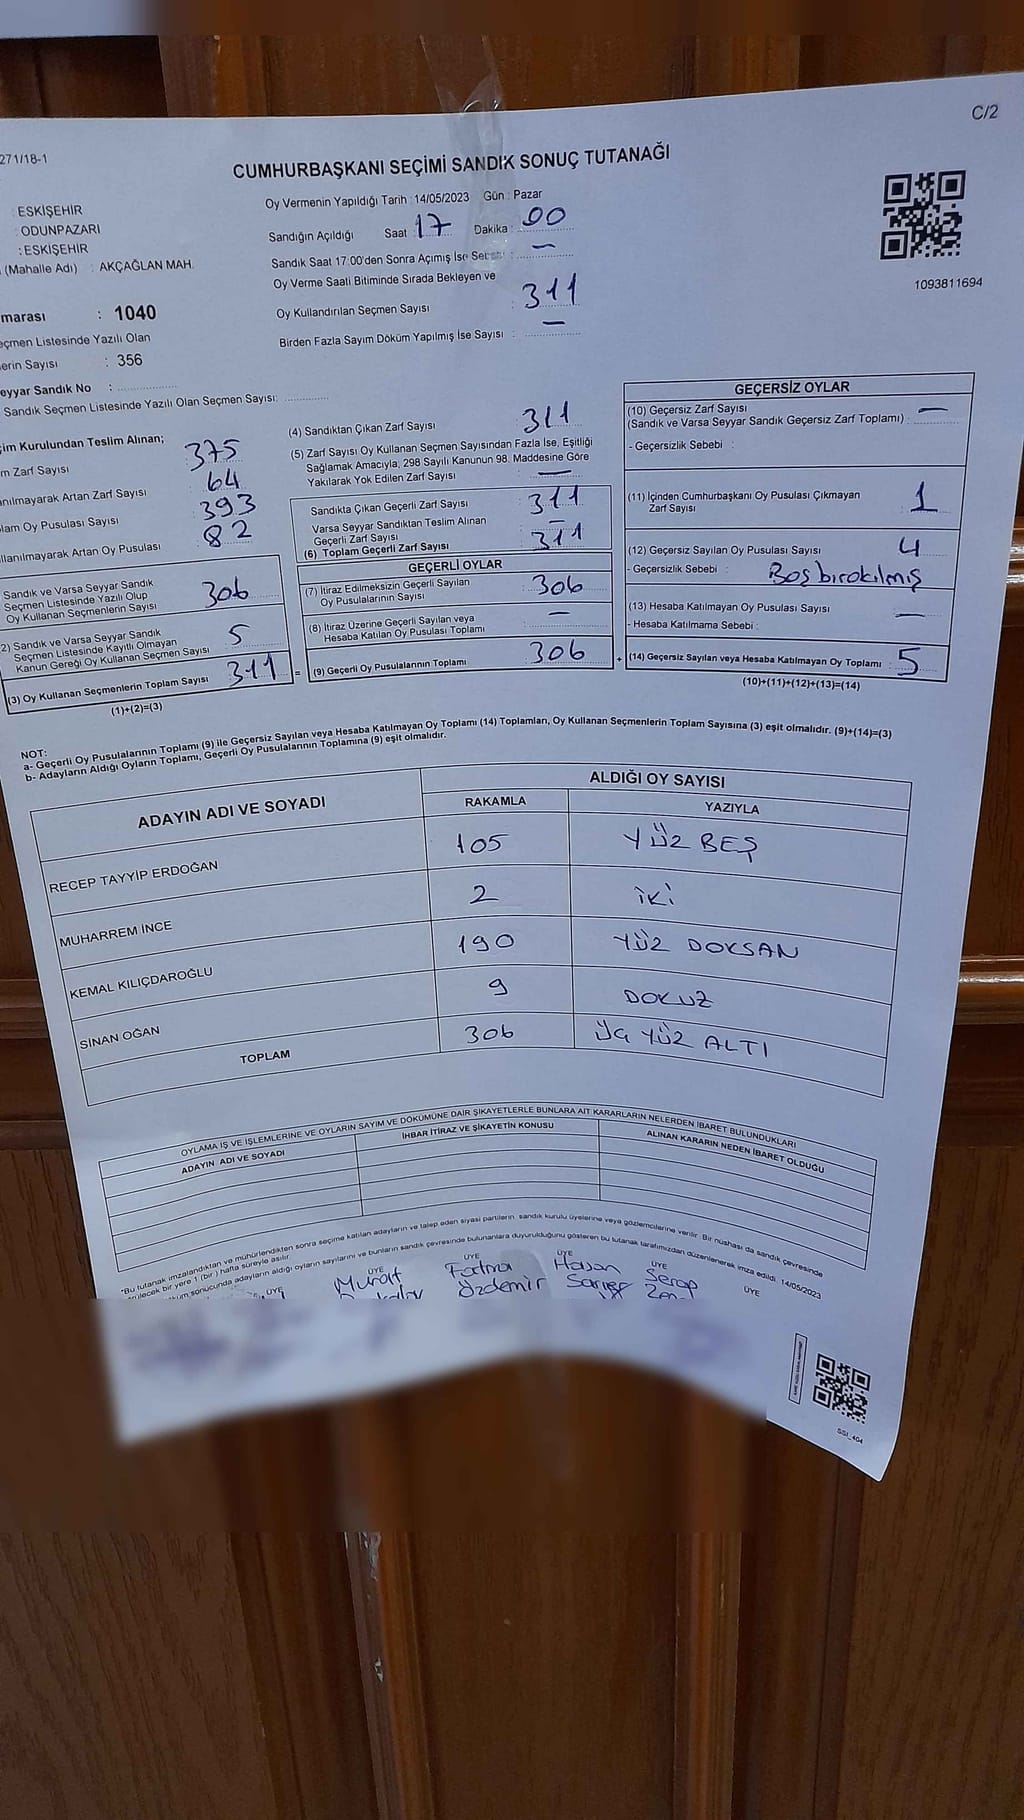 C/2
271/18-1
CUMHURBAŞKANI SEÇİMİ SANDIK SONUÇ TUTANAĞI
: ESKİŞEHİR
: ODUNPAZARI
: ESKİŞEHİR
(Mahalle Adı) : AKÇAĞLAN MAH.
marası : 1040
eçmen Listesinde Yazılı Olan
erin Sayısı : 356
eyyar Sandık No : ....................
Sandık Seçmen Listesinde Yazılı Olan Seçmen Sayısı: ..............
Oy Vermenin Yapıldığı Tarih : 14/05/2023 Gün : Pazar
Sandığın Açıldığı Saat : 17 Dakika : 00
Sandık Saat 17:00'den Sonra Açımış İse Sebebi : —
Oy Verme Saati Bitiminde Sırada Bekleyen ve
Oy Kullandırılan Seçmen Sayısı : 311
Birden Fazla Sayım Döküm Yapılmış İse Sayısı : —
1093811694
çim Kurulundan Teslim Alınan;
m Zarf Sayısı 375
anılmayarak Artan Zarf Sayısı 64
lam Oy Pusulası Sayısı 393
llanılmayarak Artan Oy Pusulası 82
Sandık ve Varsa Seyyar Sandık
Seçmen Listesinde Yazılı Olup
Oy Kullanan Seçmenlerin Sayısı 306
2) Sandık ve Varsa Seyyar Sandık
Seçmen Listesinde Kayıtlı Olmayan
Kanun Gereği Oy Kullanan Seçmen Sayısı 5
(3) Oy Kullanan Seçmenlerin Toplam Sayısı 311
(1)+(2)=(3)
(4) Sandıktan Çıkan Zarf Sayısı 311
(5) Zarf Sayısı Oy Kullanan Seçmen Sayısından Fazla İse, Eşitliği
Sağlamak Amacıyla; 298 Sayılı Kanunun 98. Maddesine Göre
Yakılarak Yok Edilen Zarf Sayısı —
Sandıkta Çıkan Geçerli Zarf Sayısı 311
Varsa Seyyar Sandıktan Teslim Alınan
Geçerli Zarf Sayısı —
(6) Toplam Geçerli Zarf Sayısı 311
GEÇERLİ OYLAR
(7) İtiraz Edilmeksizin Geçerli Sayılan
Oy Pusulalarının Sayısı 306
(8) İtiraz Üzerine Geçerli Sayılan veya
Hesaba Katılan Oy Pusulası Toplamı —
= (9) Geçerli Oy Pusulalarının Toplamı 306 +
GEÇERSİZ OYLAR
(10) Geçersiz Zarf Sayısı
(Sandık ve Varsa Seyyar Sandık Geçersiz Zarf Toplamı) : —
- Geçersizlik Sebebi :
(11) İçinden Cumhurbaşkanı Oy Pusulası Çıkmayan
Zarf Sayısı 1
(12) Geçersiz Sayılan Oy Pusulası Sayısı 4
- Geçersizlik Sebebi : Boş bırakılmış
(13) Hesaba Katılmayan Oy Pusulası Sayısı —
- Hesaba Katılmama Sebebi :
(14) Geçersiz Sayılan veya Hesaba Katılmayan Oy Toplamı : 5
(10)+(11)+(12)+(13)=(14)
NOT:
a- Geçerli Oy Pusulalarının Toplamı (9) ile Geçersiz Sayılan veya Hesaba Katılmayan Oy Toplamı (14) Toplamları, Oy Kullanan Seçmenlerin Toplam Sayısına (3) eşit olmalıdır. (9)+(14)=(3)
b- Adayların Aldığı Oyların Toplamı, Geçerli Oy Pusulalarının Toplamına (9) eşit olmalıdır.
ADAYIN ADI VE SOYADI
ALDIĞI OY SAYISI
RAKAMLA YAZIYLA
RECEP TAYYİP ERDOĞAN 105 YÜZ BEŞ
MUHARREM İNCE 2 İKİ
KEMAL KILIÇDAROĞLU 190 YÜZ DOKSAN
SİNAN OĞAN 9 DOKUZ
TOPLAM 306 ÜÇ YÜZ ALTI
OYLAMA İŞ VE İŞLEMLERİNE VE OYLARIN SAYIM VE DÖKÜMÜNE DAİR ŞİKAYETLERLE BUNLARA AİT KARARLARIN NELERDEN İBARET BULUNDUKLARI
ADAYIN ADI VE SOYADI
İHBAR İTİRAZ VE ŞİKAYETİN KONUSU
ALINAN KARARIN NEDEN İBARET OLDUĞU
"Bu tutanak imzalandıktan ve mühürlendikten sonra seçime katılan adayların ve talep eden siyasi partilerin sandık kurulu üyelerine veya gözlemcilerine verilir. Bir nüshası da sandık çevresinde
rülecek bir yere 1 (bir) hafta süreyle asılır.
küm sonucunda adayların aldığı oyların sayılarını ve bunların sandık çevresinde bulunanlara duyurulduğunu gösteren bu tutanak tarafımızdan düzenlenerek imza edildi. 14/05/2023
ÜYE ÜYE ÜYE ÜYE ÜYE ÜYE
Murat Fatma Hasan Serap
Özdemir
SSI_404